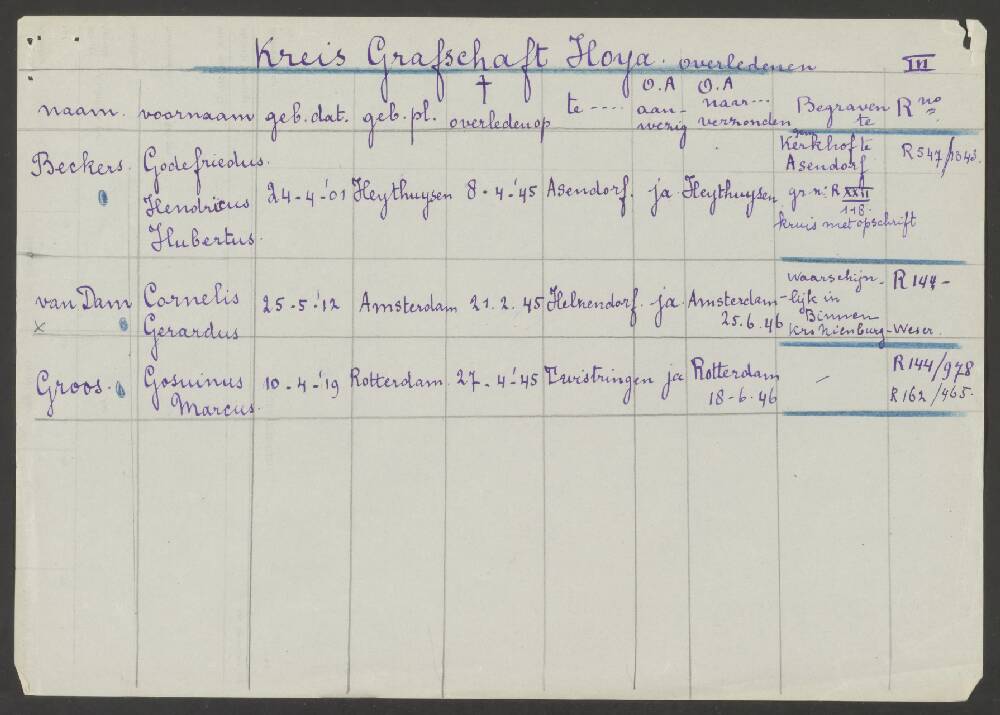 Kreis Grafschaft Hoya. overledenen III
naam. voornaam geb.dat. geb.pl. † overleden op te ---- O.A aanwezig O.A naar--- verzonden Begraven te R no
Beckers. Godefriedus Hendricus Hubertus. 24-4-'01 Heythuysen 8-4-'45 Asendorf. ja Heythuysen
Kerkhof te
Asendorf
gr.n: R XXII
118.
kruis met opschrift
R547/
van Dam Cornelis Gerardus 25-5-'12 Amsterdam 21.2.45 ja Amsterdam 25.6.46
x
waarschijn-
-lijk in
Binnen
Krs Nienburg-Weser.
R 144-
Groos. Gosuinus Marcus. 10-4-'19 Rotterdam 27-4-'45 Twistringen ja Rotterdam 18-6-46 —
R144/978
R162/465-